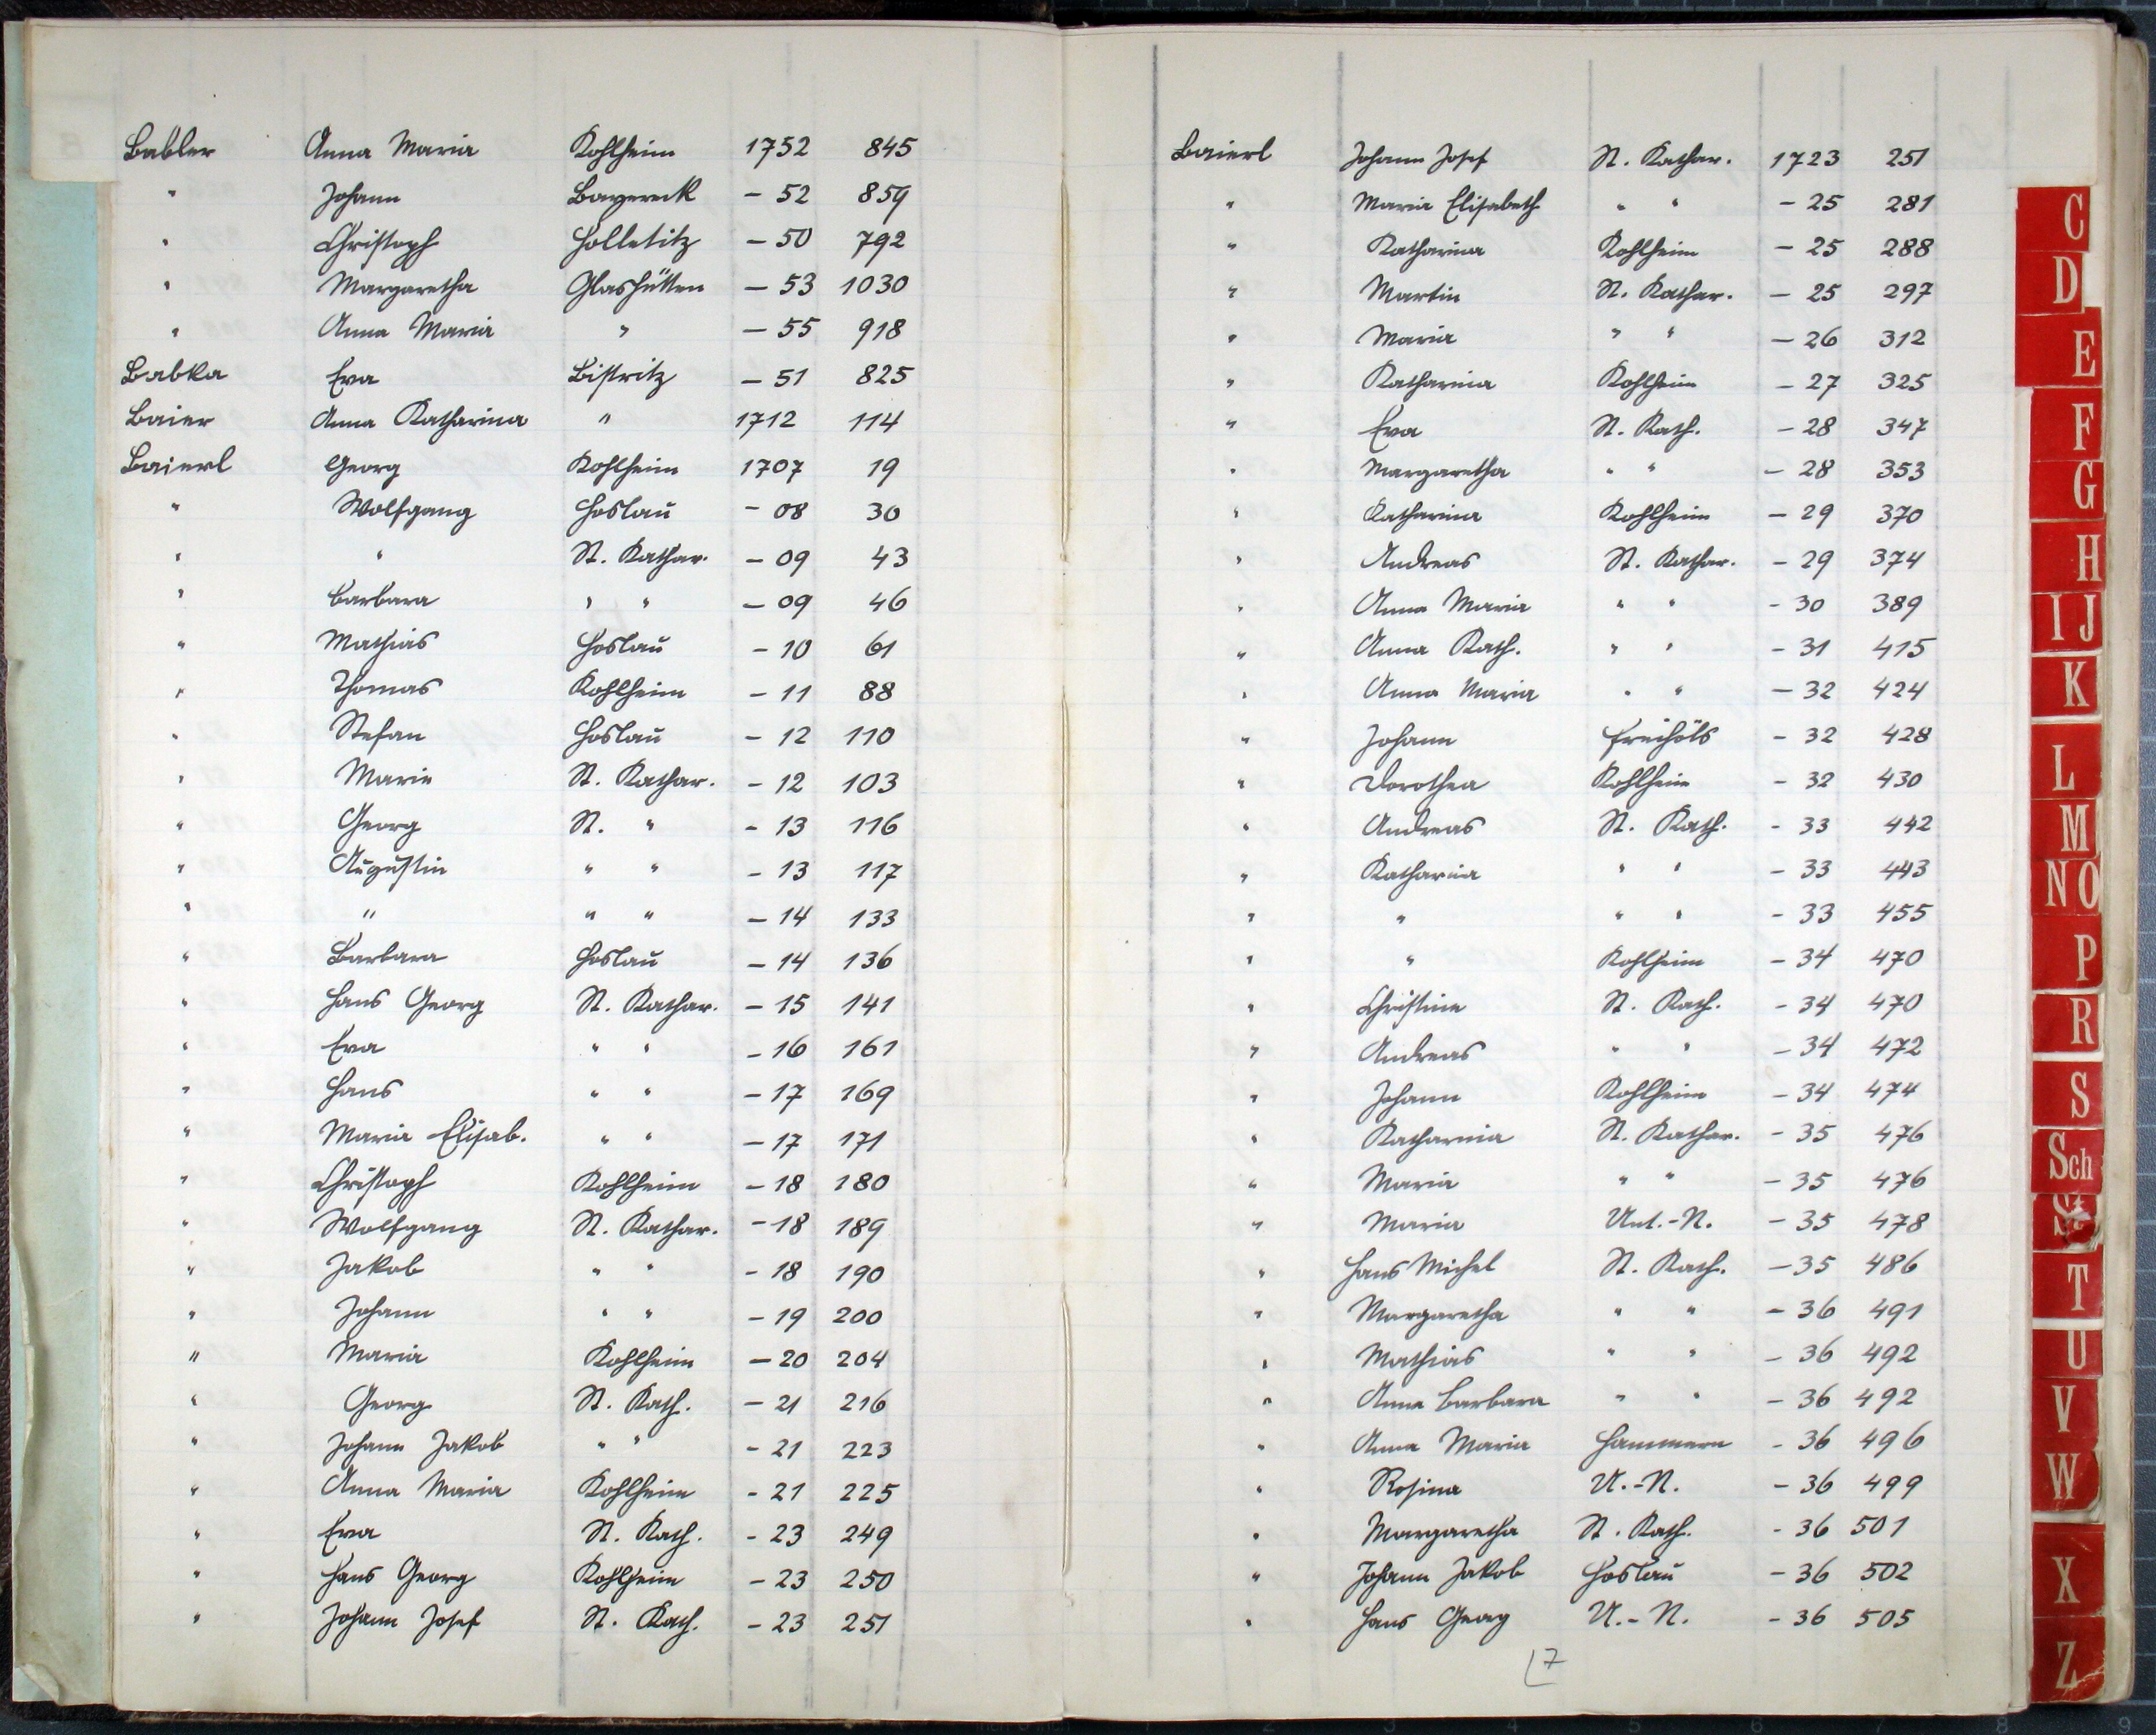 Babler Anna Maria Kohlheim 1752 845
" Johann Bayereck - 52 859
" Christoph Holletitz - 50 792
" Margaretha Glashütten - 53 1030
" Anna Maria " - 55 918
Babka Eva Bistritz - 51 825
Baier Anna Katharina " 1712 114
Baierl Georg Kohlheim 1707 19
" Wolfgang Hoslau - 08 30
" " St. Kathar. - 09 43
" Barbara " " - 09 46
" Mathias Hoslau - 10 61
" Thomas Kohlheim - 11 88
" Stefan Hoslau - 12 110
" Marie St. Kathar. - 12 103
" Georg St. " - 13 116
" Augustin " " - 13 117
" " " " - 14 133
" Barbara Hoslau - 14 136
" Hans Georg St. Kathar. - 15 141
" Eva " " - 16 161
" Hans " " - 17 169
" Maria Elisab. " " - 17 171
" Christoph Kohlheim - 18 180
" Wolfgang St. Kathar. - 18 189
" Jakob " " - 18 190
" Johann " " - 19 200
" Maria Kohlheim - 20 204
" Georg St. Kath. - 21 216
" Johann Jakob " " - 21 223
" Anna Maria Kohlheim - 21 225
" Eva St. Kath. - 23 249
" Hans Georg Kohlheim - 23 250
" Johann Josef St. Kath. - 23 251
Baierl Johann Josef St. Kathar. 1723 251
" Maria Elisabeth " " - 25 281
" Katharina Kohlheim - 25 288
" Martin St. Kathar. - 25 297
" Maria " " - 26 312
" Katharina Kohlheim - 27 325
" Eva St. Kath. - 28 347
" Margaretha " " - 28 353
" Katharina Kohlheim - 29 370
" Andreas St. Kathar. - 29 374
" Anna Maria " " - 30 389
" Anna Kath. " " - 31 415
" Anna Maria " " - 32 424
" Johann Freihöls - 32 428
" Dorothea Kohlheim - 32 430
" Andreas St. Kath. - 33 442
" Katharina " " - 33 443
" " " " - 33 455
" " Kohlheim - 34 470
" Christine St. Kath. - 34 470
" Andreas " " - 34 472
" Johann Kohlheim - 34 474
" Katharina St. Kathar. - 35 476
" Maria " " - 35 476
" Maria Unt.-N. - 35 478
" Hans Michel St. Kath. - 35 486
" Margaretha " " - 36 491
" Mathias " " - 36 492
" Anna Barbara " " - 36 492
" Anna Maria Hammern - 36 496
" Rosina U.-N. - 36 499
" Margaretha St. Kath. - 36 501
" Johann Jakob Hoslau - 36 502
" Hans Georg U.-N. - 36 505
7
C
D
E
F
G
H
IJ
K
L
M
NO
P
R
S
Sch
St
T
U
V
W
X
Z